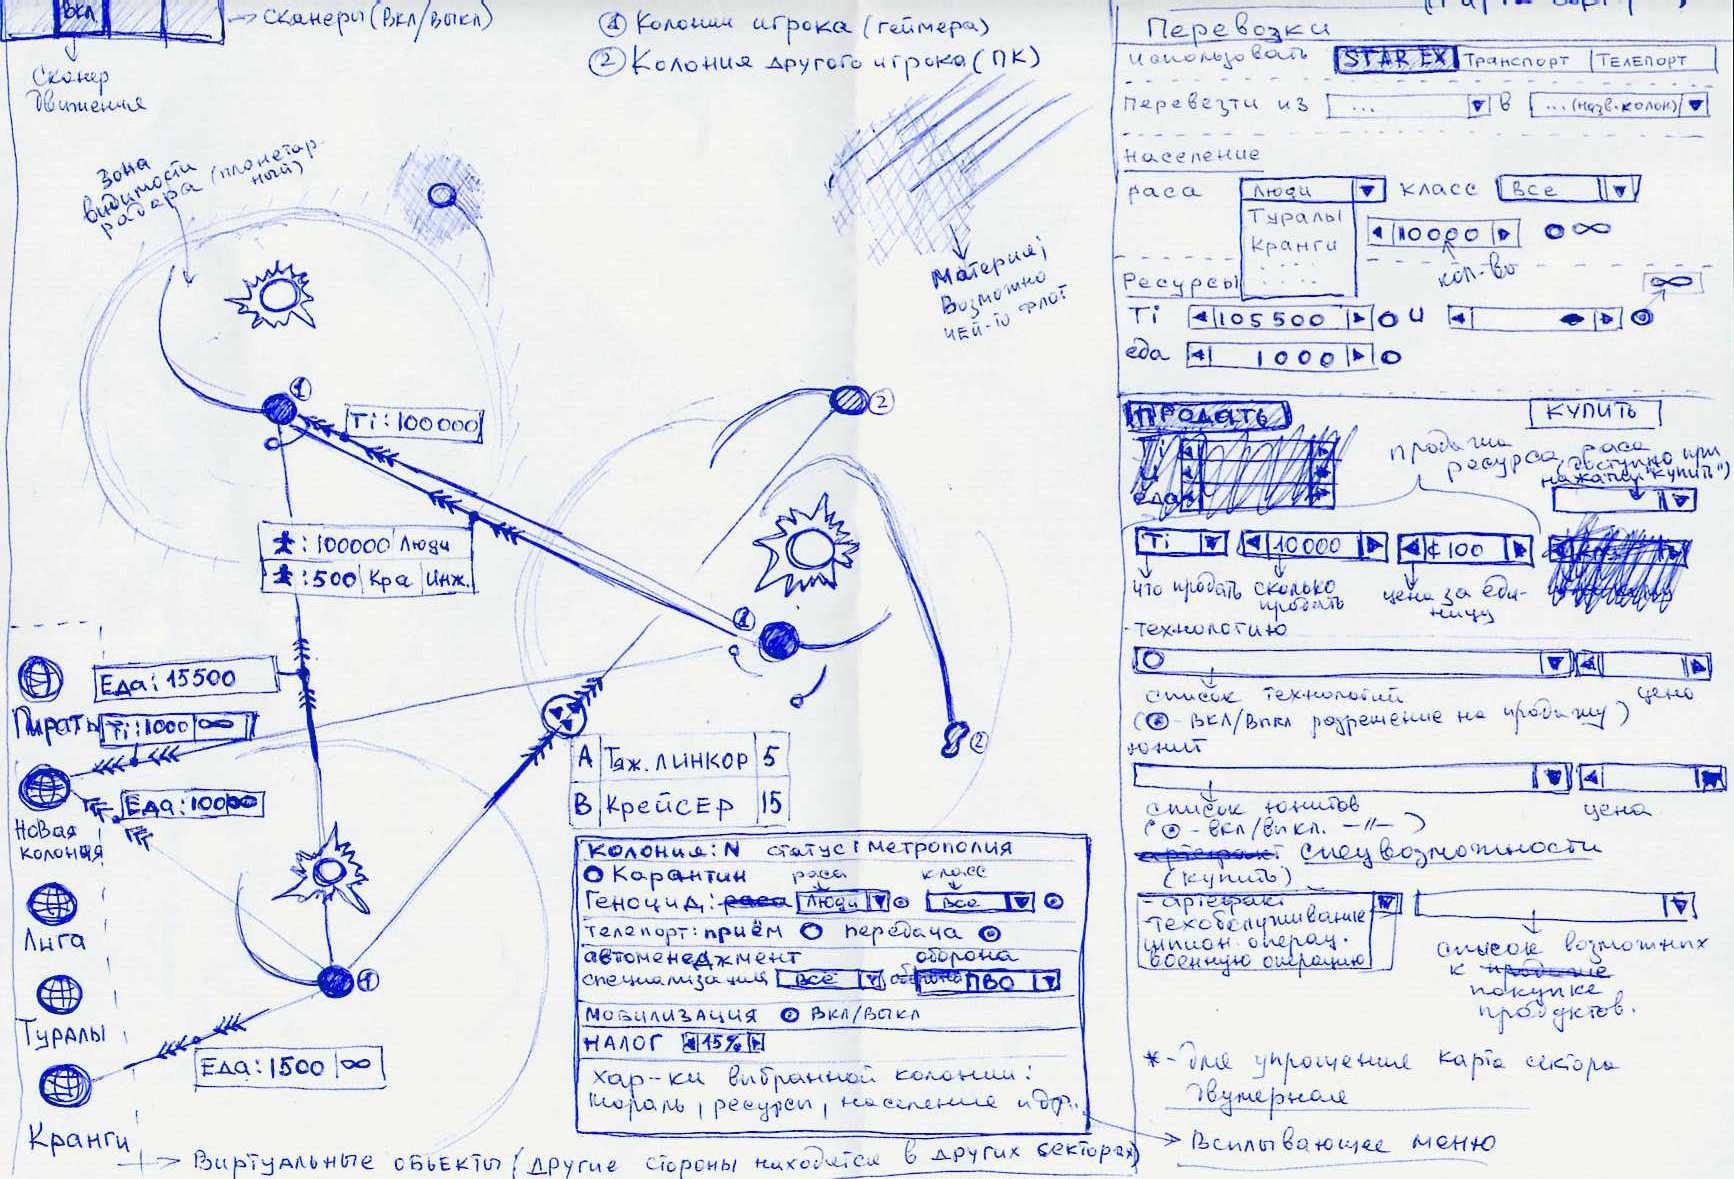 ВКЛ
→ Сканеры (ВКЛ/ВЫКЛ)
Сканер
движения
① Колонии игрока (геймера)
② Колония другого игрока (ПК)
Зона
видимости
радара (планетар-
ный)
Материя;
Возможно
чей-то флот
①
Ti: 100000
②
: 100000 Люди
: 500 Кра Инж.
①
②
Еда: 15500
Пираты
Ti: 1000 ∞
Новая
колония
Еда: 10000
Лига
Туралы
Кранги
①
Еда: 1500 ∞
А Тяж. линкор 5
В Крейсер 15
Колония: N статус: метрополия
Карантин раса класс
Геноцид: раса Люди Все
телепорт: приём передача
автоменеджмент оборона
специализация Все ПВО
мобилизация вкл/выкл
налог 15%
Хар-ки выбранной колонии:
мораль, ресурсы, население и др.
→ Всплывающее меню
→ Виртуальные объекты (другие стороны находятся в других секторах)
Перевозки
использовать STAR EX Транспорт Телепорт
Перевезти из ... в ... (назв. колон)
население
раса Люди класс Все
Туралы
Кранги
10000 ∞
кол-во
Ресурсы ∞
Ti 105500 и
еда 1000
ПРОДАТЬ КУПИТЬ
Ti
еда
продажа
ресурса
раса
(доступно при
нажатии "купить")
Ti 10000 ¢ 100
что продать сколько
продать
цена за еди-
ницу
технологию
список технологий цена
( - вкл/выкл разрешение на продажу)
юнит
список юнитов цена
( - вкл/выкл. —"— )
артефакт спецвозможности
(купить)
- артефакт
техобслуживание
шпион. операц.
военную операцию
список возможных
к продаже
покупке
продуктов.
* - для упрощения карта сектора
двумерная